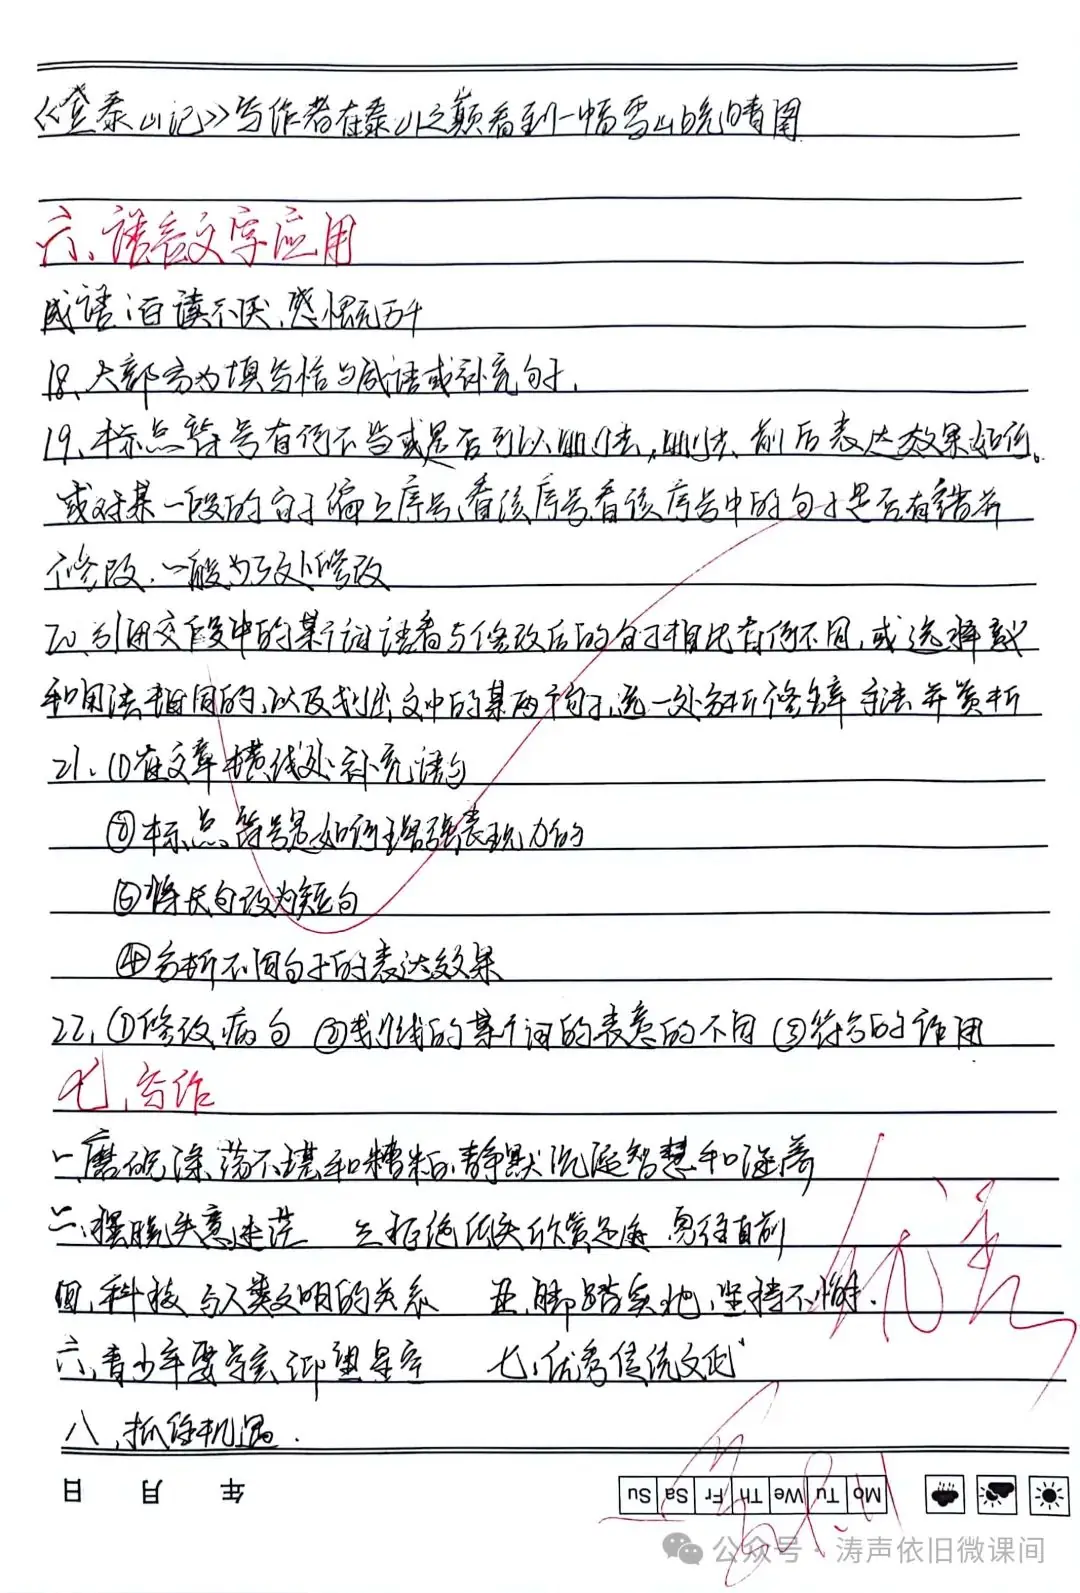 《登泰山记》写作者在泰山之巅看到一幅雪山晚晴图
六、语言文字应用
成语:百读不厌、感慨万千
18、大部分为填写恰当成语或补充句子.
19、标点符号有何不当或是否可以删去,删去前后表达效果如何。
或对某一段的句子编上序号,看该序号看该序号中的句子是否有错并
修改.一般为3处修改
20、引用文段中的某个词语看与修改后的句子相比有何不同,或选择或
和用法相同的,以及划出文中的某两个句子,选一处分析修辞手法并赏析
21、①在文章横线处补充语句
②标点符号是如何增强表现力的
③将长句改为短句
④分析不同句子的表达效果
22、①修改病句 ②划线的某个词的表意的不同 ③符号的作用
七、写作
一、磨砺涤荡不堪和糟粕,静默沉淀智慧和涵养
二、摆脱失意迷茫 三、拒绝 勇往直前
四、科技与人类文明的关系 五、脚踏实地,坚持不懈.
六、青少年要学会仰望星空 七、优秀传统文化
八、抓住机遇.
优秀
日 月 年
Mo Tu We Th Fr Sa Su
公众号·涛声依旧微课间